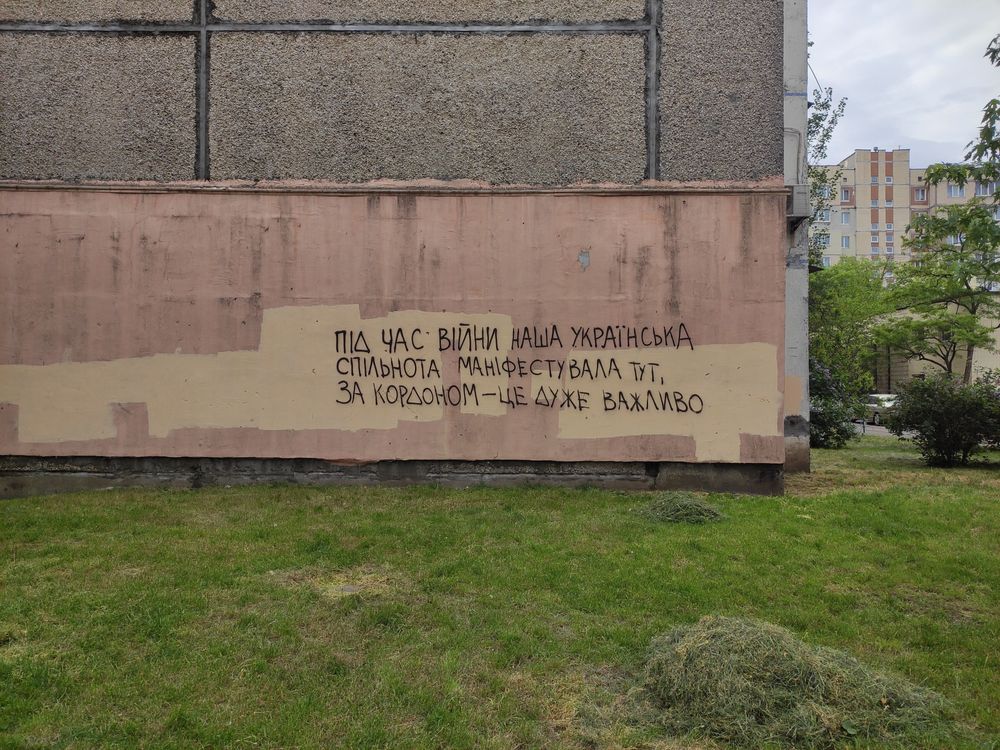 ПІД ЧАС ВІЙНИ НАША УКРАЇНСЬКА
СПІЛЬНОТА МАНІФЕСТУВАЛА ТУТ,
ЗА КОРДОНОМ – ЦЕ ДУЖЕ ВАЖЛИВО